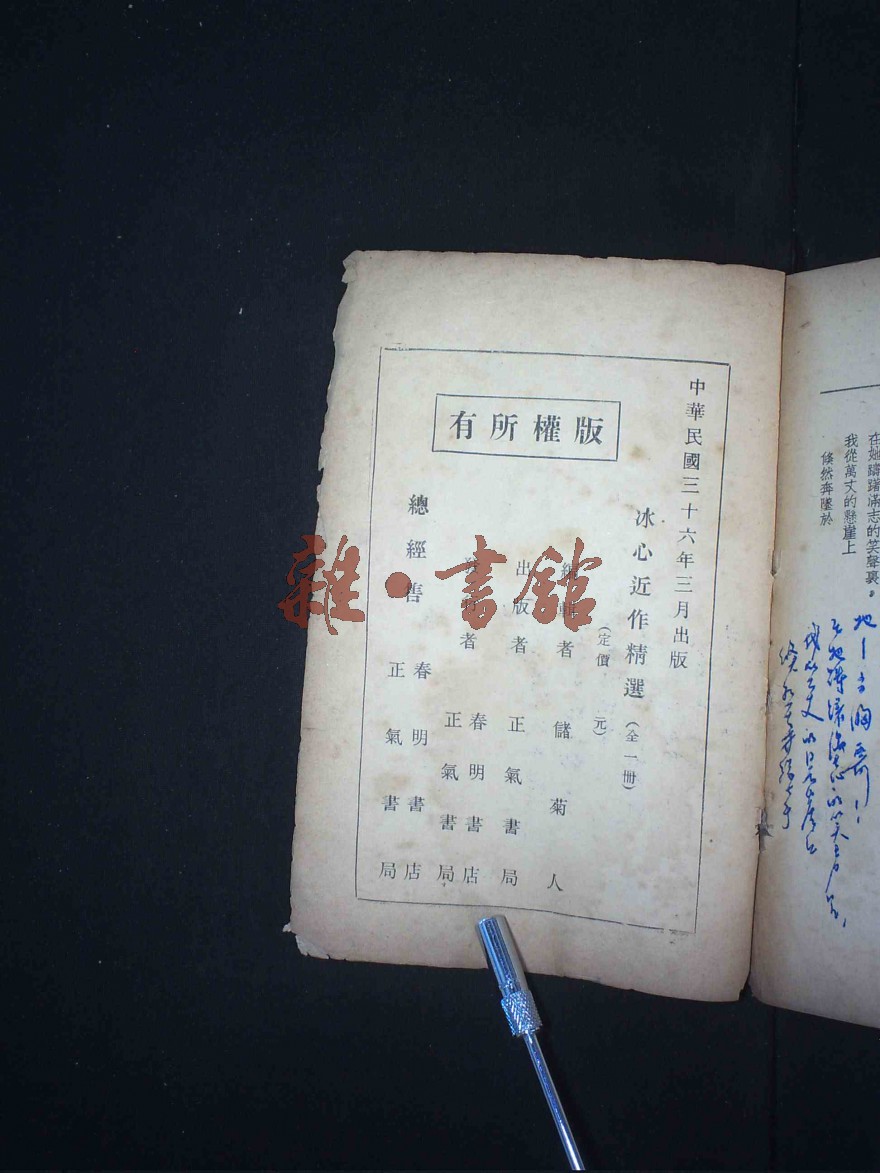 在她躊躇滿志的笑聲裏。
我從萬丈的懸崖上
倏然奔墜於
中華民國三十六年三月出版
冰心近作精選(全一册)
(定價 元)
編輯者 儲菊人
出版者 正氣書局
發行者 春明書店
正氣書局
總經售 春明書店
正氣書局
版權所有
雜·書館